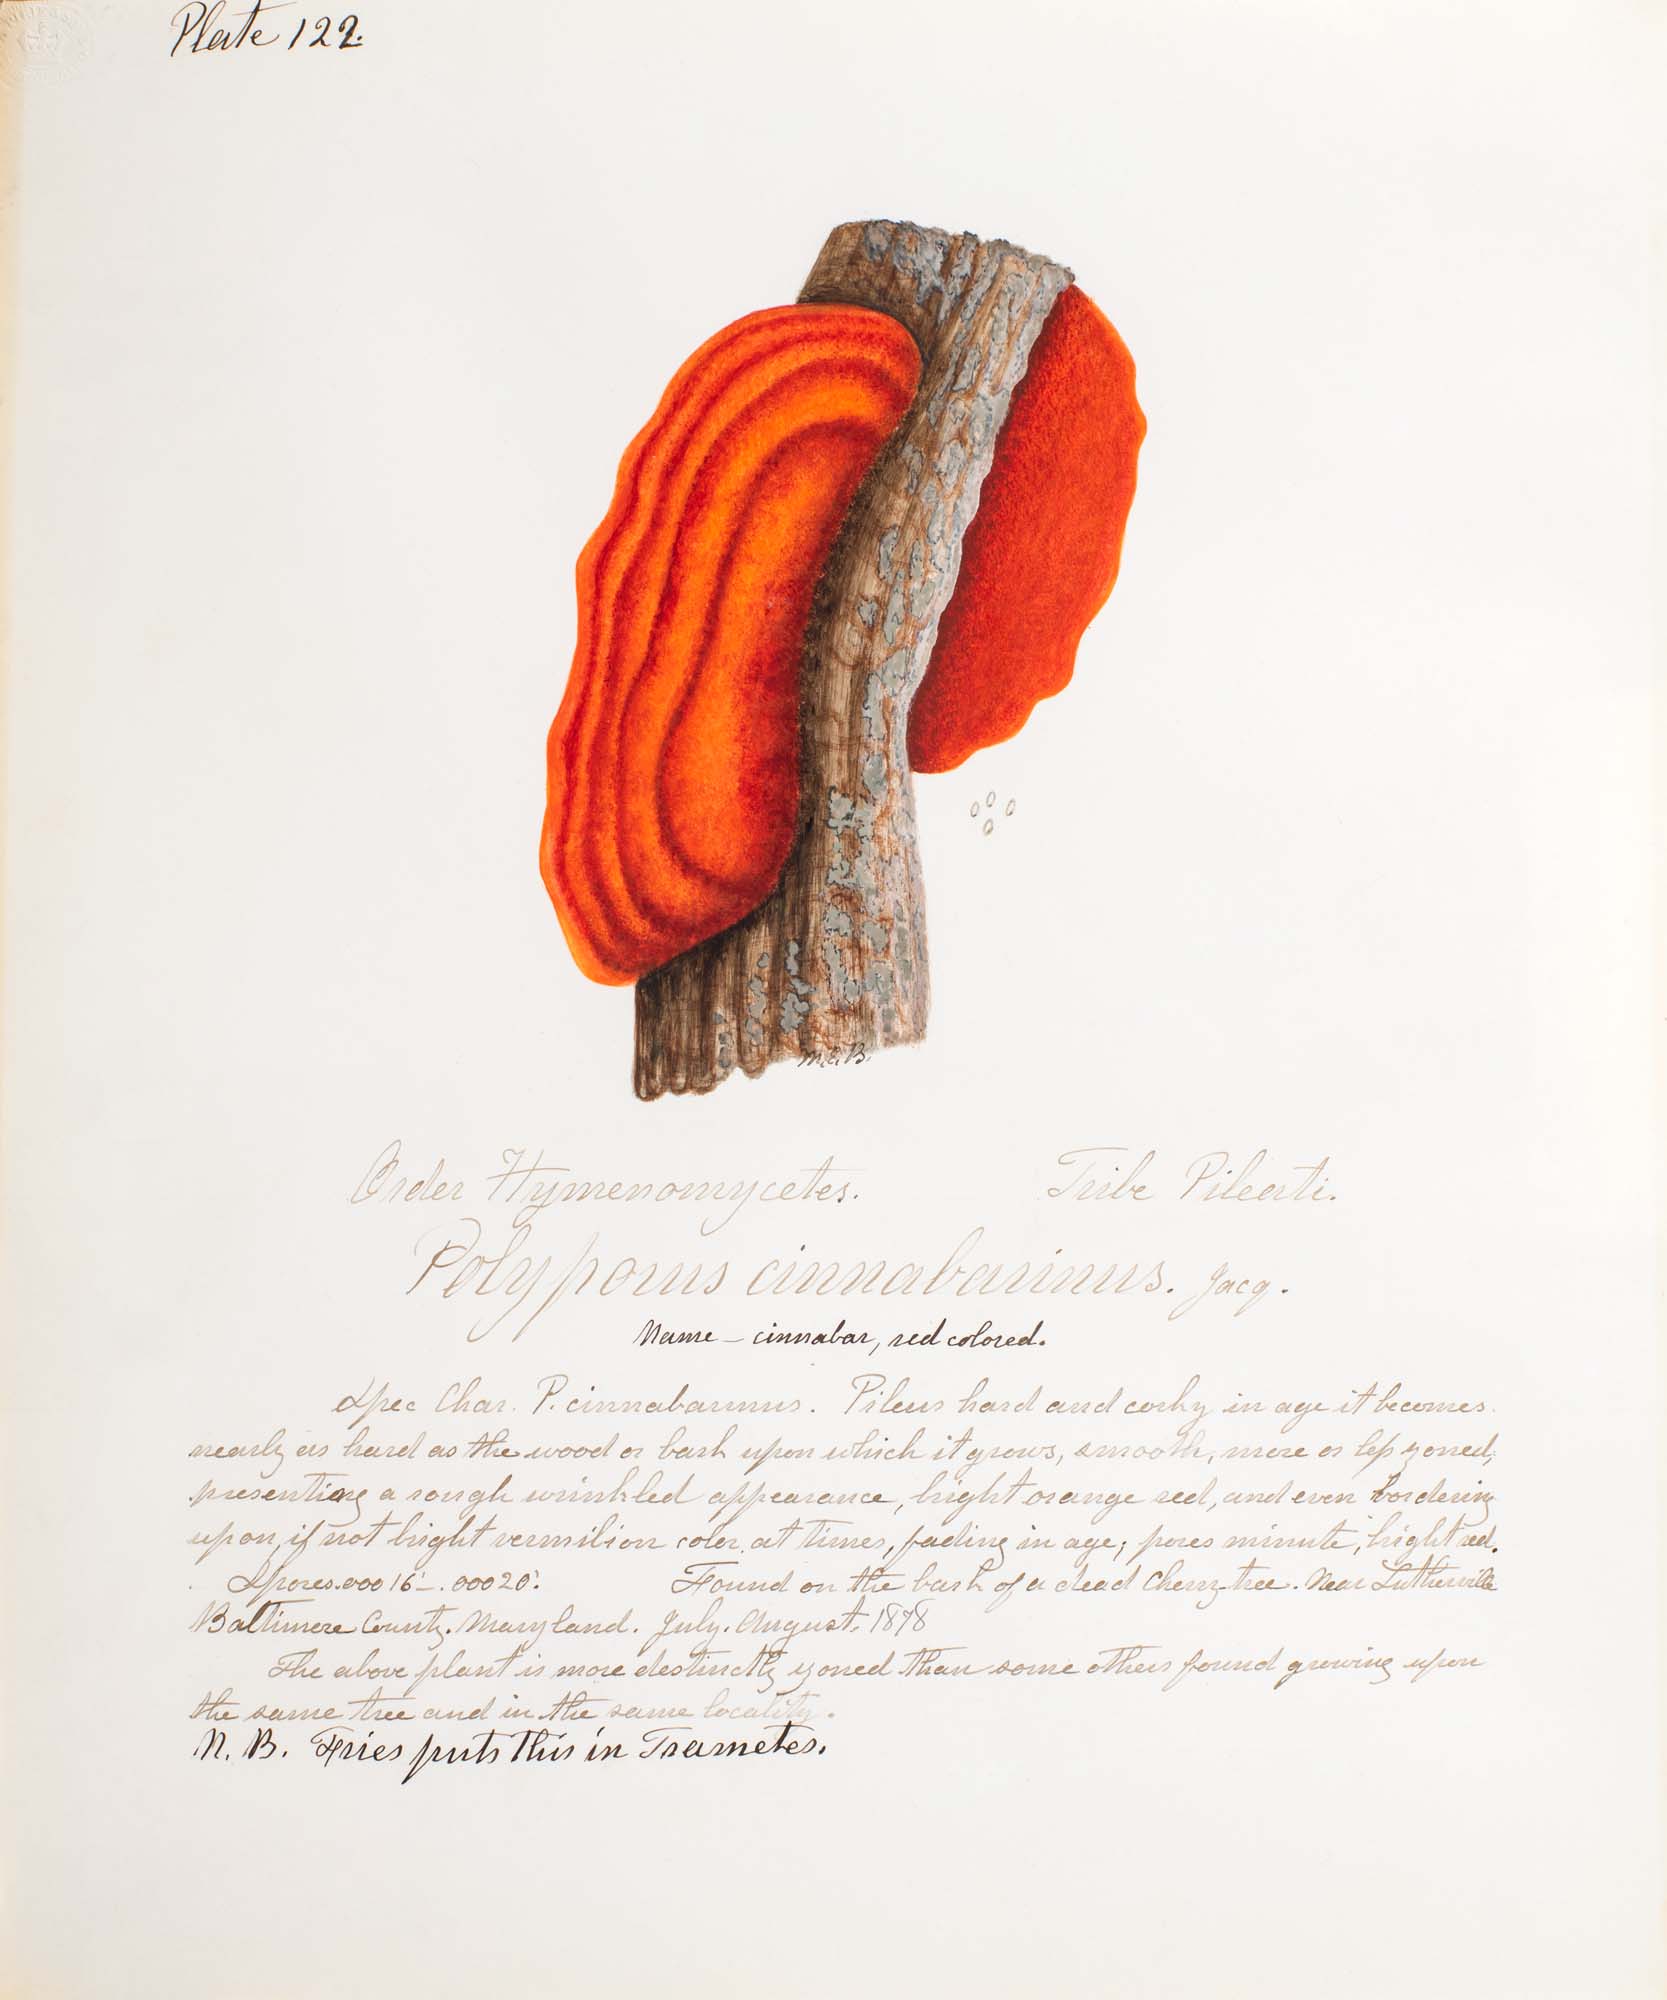 Plate 122.
M.E.B.
Order Hymenomycetes. Tribe Pileati.
Polyporus cinnabarinus. Jacq.
Name – cinnabar, red colored.
Spec Char. P. cinnabarinus. Pileus hard and corky in age it becomes
nearly as hard as the wood or bark upon which it grows, smooth, more or less zoned,
presenting a rough wrinkled appearance, bright orange red, and even bordering
upon, if not bright vermilion color, at times, fading in age; pores minute, bright red.
Spores .00016'–.00020'. Found on the bark of a dead Cherry tree. Near Lutherville
Baltimore County. Maryland. July. August. 1878
The above plant is more destinctly zoned than some others found growing upon
the same tree and in the same locality.
N. B. Fries puts this in Trametes.